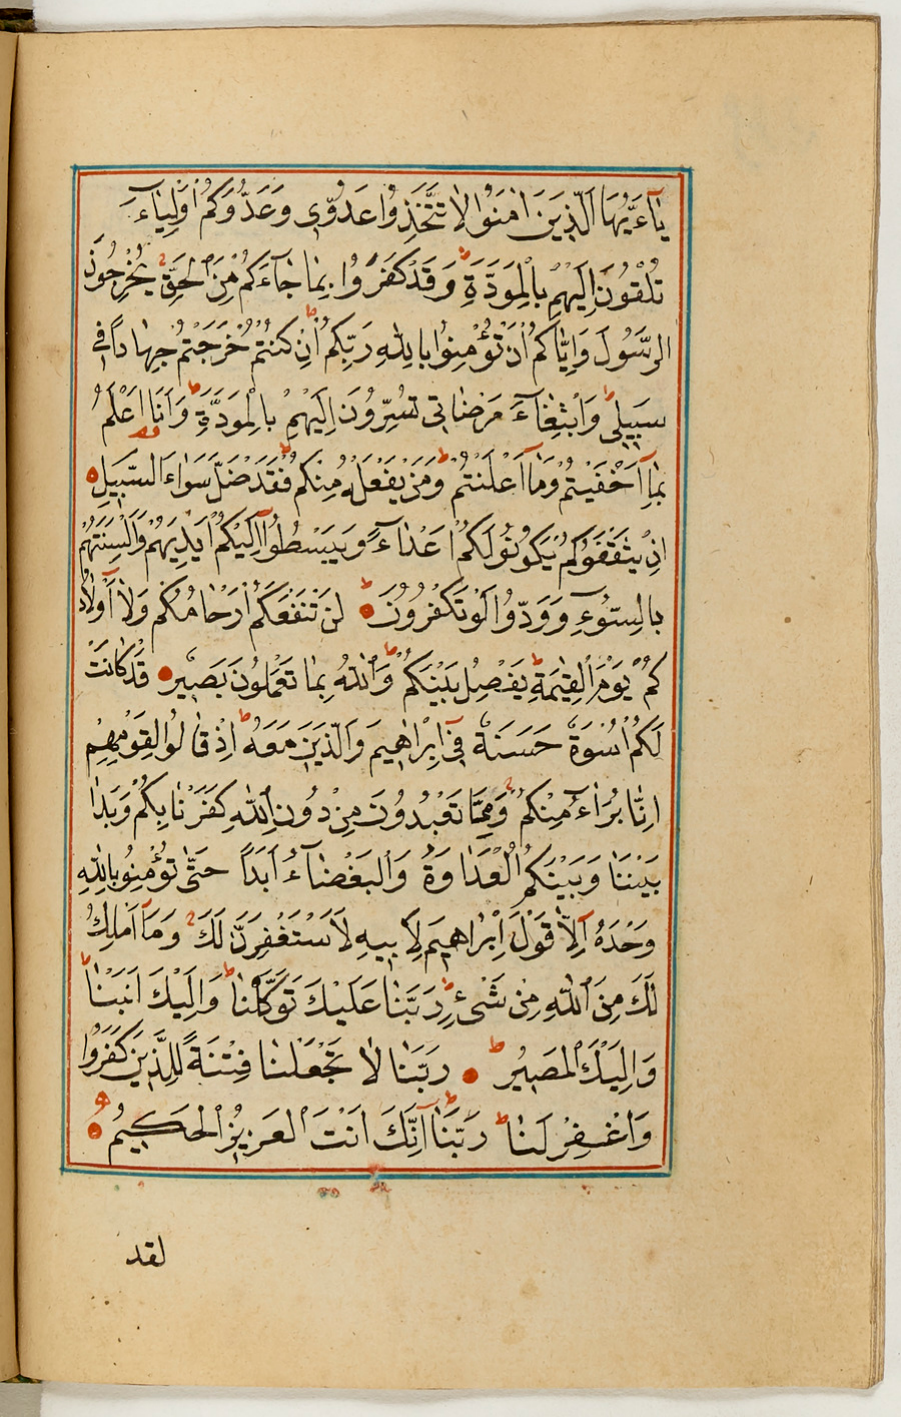 يَآءَيُّهَا الَّذِينَ اٰمَنُوا لَا تَتَّخِذُوا عَدُوِّى وَعَدُوَّكُمْ اَوْلِيَآءَ
تُلْقُونَ اِلَيْهِمْ بِالْمَوَدَّةِ وَقَدْ كَفَرُوا بِمَا جَآءَكُمْ مِنَ الْحَقِّ يُخْرِجُونَ
الرَّسُولَ وَاِيَّاكُمْ اَنْ تُؤْمِنُوا بِاللّٰهِ رَبِّكُمْ اِنْ كُنْتُمْ خَرَجْتُمْ جِهَادًا فِى
سَبِيلِى وَابْتِغَآءَ مَرْضَاتِى تُسِرُّونَ اِلَيْهِمْ بِالْمَوَدَّةِ وَاَنَا اَعْلَمُ
بِمَآ اَخْفَيْتُمْ وَمَآ اَعْلَنْتُمْ وَمَنْ يَفْعَلْهُ مِنْكُمْ فَقَدْ ضَلَّ سَوَاءَ السَّبِيلِ
اِنْ يَثْقَفُوكُمْ يَكُونُوا لَكُمْ اَعْدَاءً وَيَبْسُطُوٓا اِلَيْكُمْ اَيْدِيَهُمْ وَاَلْسِنَتَهُمْ
بِالسُّوٓءِ وَوَدُّوا لَوْ تَكْفُرُونَ لَنْ تَنْفَعَكُمْ اَرْحَامُكُمْ وَلَآ اَوْلَادُ
كُمْ يَوْمَ الْقِيٰمَةِ يَفْصِلُ بَيْنَكُمْ وَاللّٰهُ بِمَا تَعْمَلُونَ بَصِيرٌ قَدْ كَانَتْ
لَكُمْ اُسْوَةٌ حَسَنَةٌ فِىٓ اِبْرٰاهِيمَ وَالَّذِينَ مَعَهُ اِذْ قَالُوا لِقَوْمِهِمْ
اِنَّا بُرَآءُ مِنْكُمْ وَمِمَّا تَعْبُدُونَ مِنْ دُونِ اللّٰهِ كَفَرْنَا بِكُمْ وَبَدَا
بَيْنَنَا وَبَيْنَكُمُ الْعَدَاوَةُ وَالْبَغْضَآءُ اَبَدًا حَتّٰى تُؤْمِنُوا بِاللّٰهِ
وَحْدَهُ اِلَّا قَوْلَ اِبْرٰاهِيمَ لِاَبِيهِ لَاَسْتَغْفِرَنَّ لَكَ وَمَآ اَمْلِكُ
لَكَ مِنَ اللّٰهِ مِنْ شَىْءٍ رَبَّنَا عَلَيْكَ تَوَكَّلْنَا وَاِلَيْكَ اَنَبْنَا
وَاِلَيْكَ الْمَصِيرُ رَبَّنَا لَا تَجْعَلْنَا فِتْنَةً لِلَّذِينَ كَفَرُوا
وَاغْفِرْ لَنَا رَبَّنَآ اِنَّكَ اَنْتَ الْعَزِيزُ الْحَكِيمُ
لقد